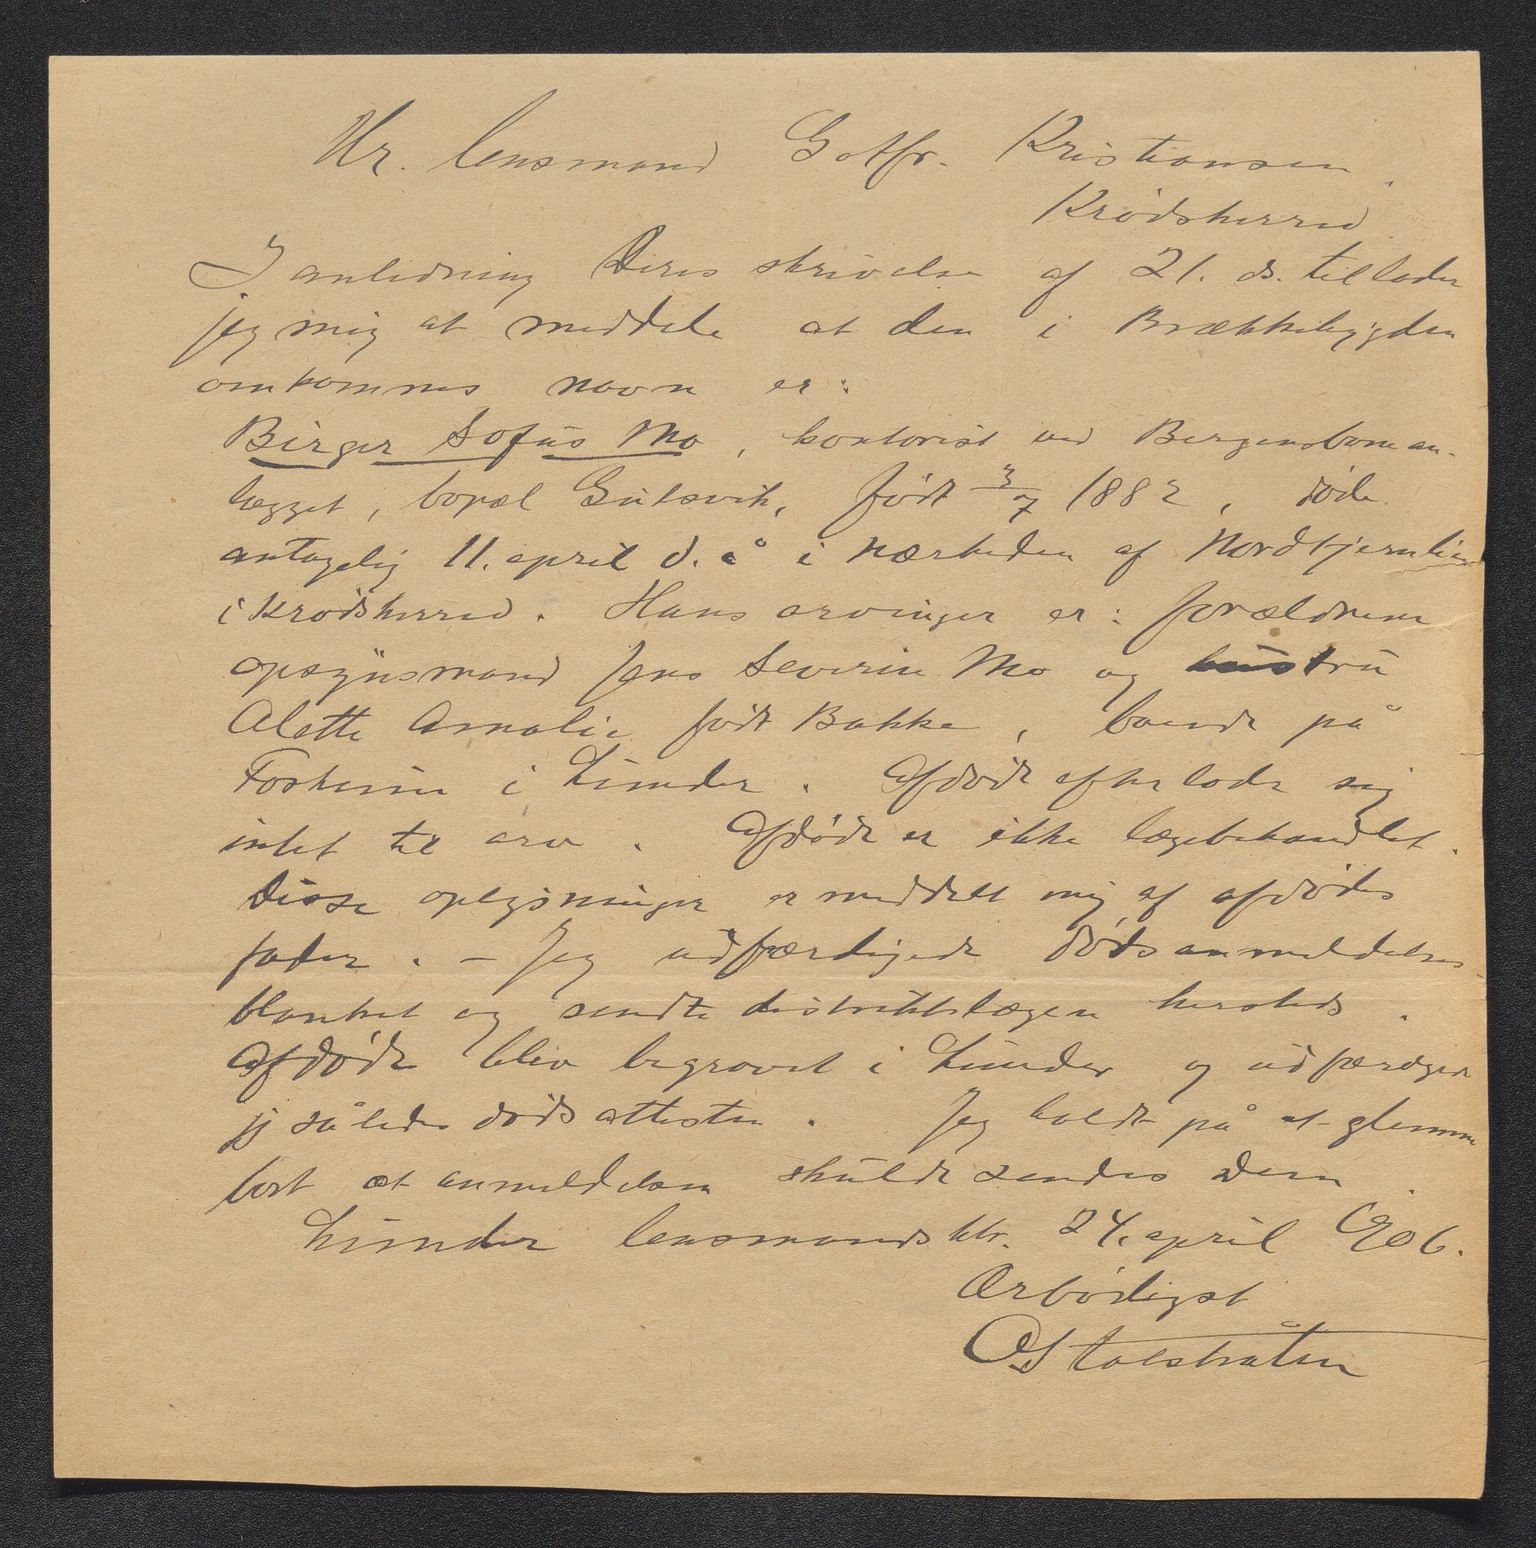 Hr. lensmand Gotfr. Kristiansen,
Krødsherred
I anledning Deres skrivelse af 21. ds. tillader
jeg mig at meddele at den i Brækkebygden
omkomnes navn er:
Birger Sofus Mo, kontorist ved Bergensbanean-
lægget, bopæl Gulsvik, født 3/7 1882, døde
antagelig 11. april d. å i nærheden af Nordtjernlien
i Krødsherred. Hans arvinger er: forældrene
opsynsmand Jens Severin Mo og hustru
Alette Amalie født Bakke, boende på
i Lunder. Afdøde efterlader sig
intet til arv. Afdøde er ikke lægebehandlet.
Disse oplysninger er meddelt mig af afdødes
fader. – Jeg udfærdigede dødsanmeldelses-
blanket og sendte distriktslægen hersteds.
Afdøde blev begravet i Lunder og udfærdiget
jeg således dødsattesten. Jeg holdt på at glemme
bort at anmeldelsen skulde sendes Dem.
Lunder lensmandsktr. 24. april 1906.
Ærbødigst
O Stalsbråten